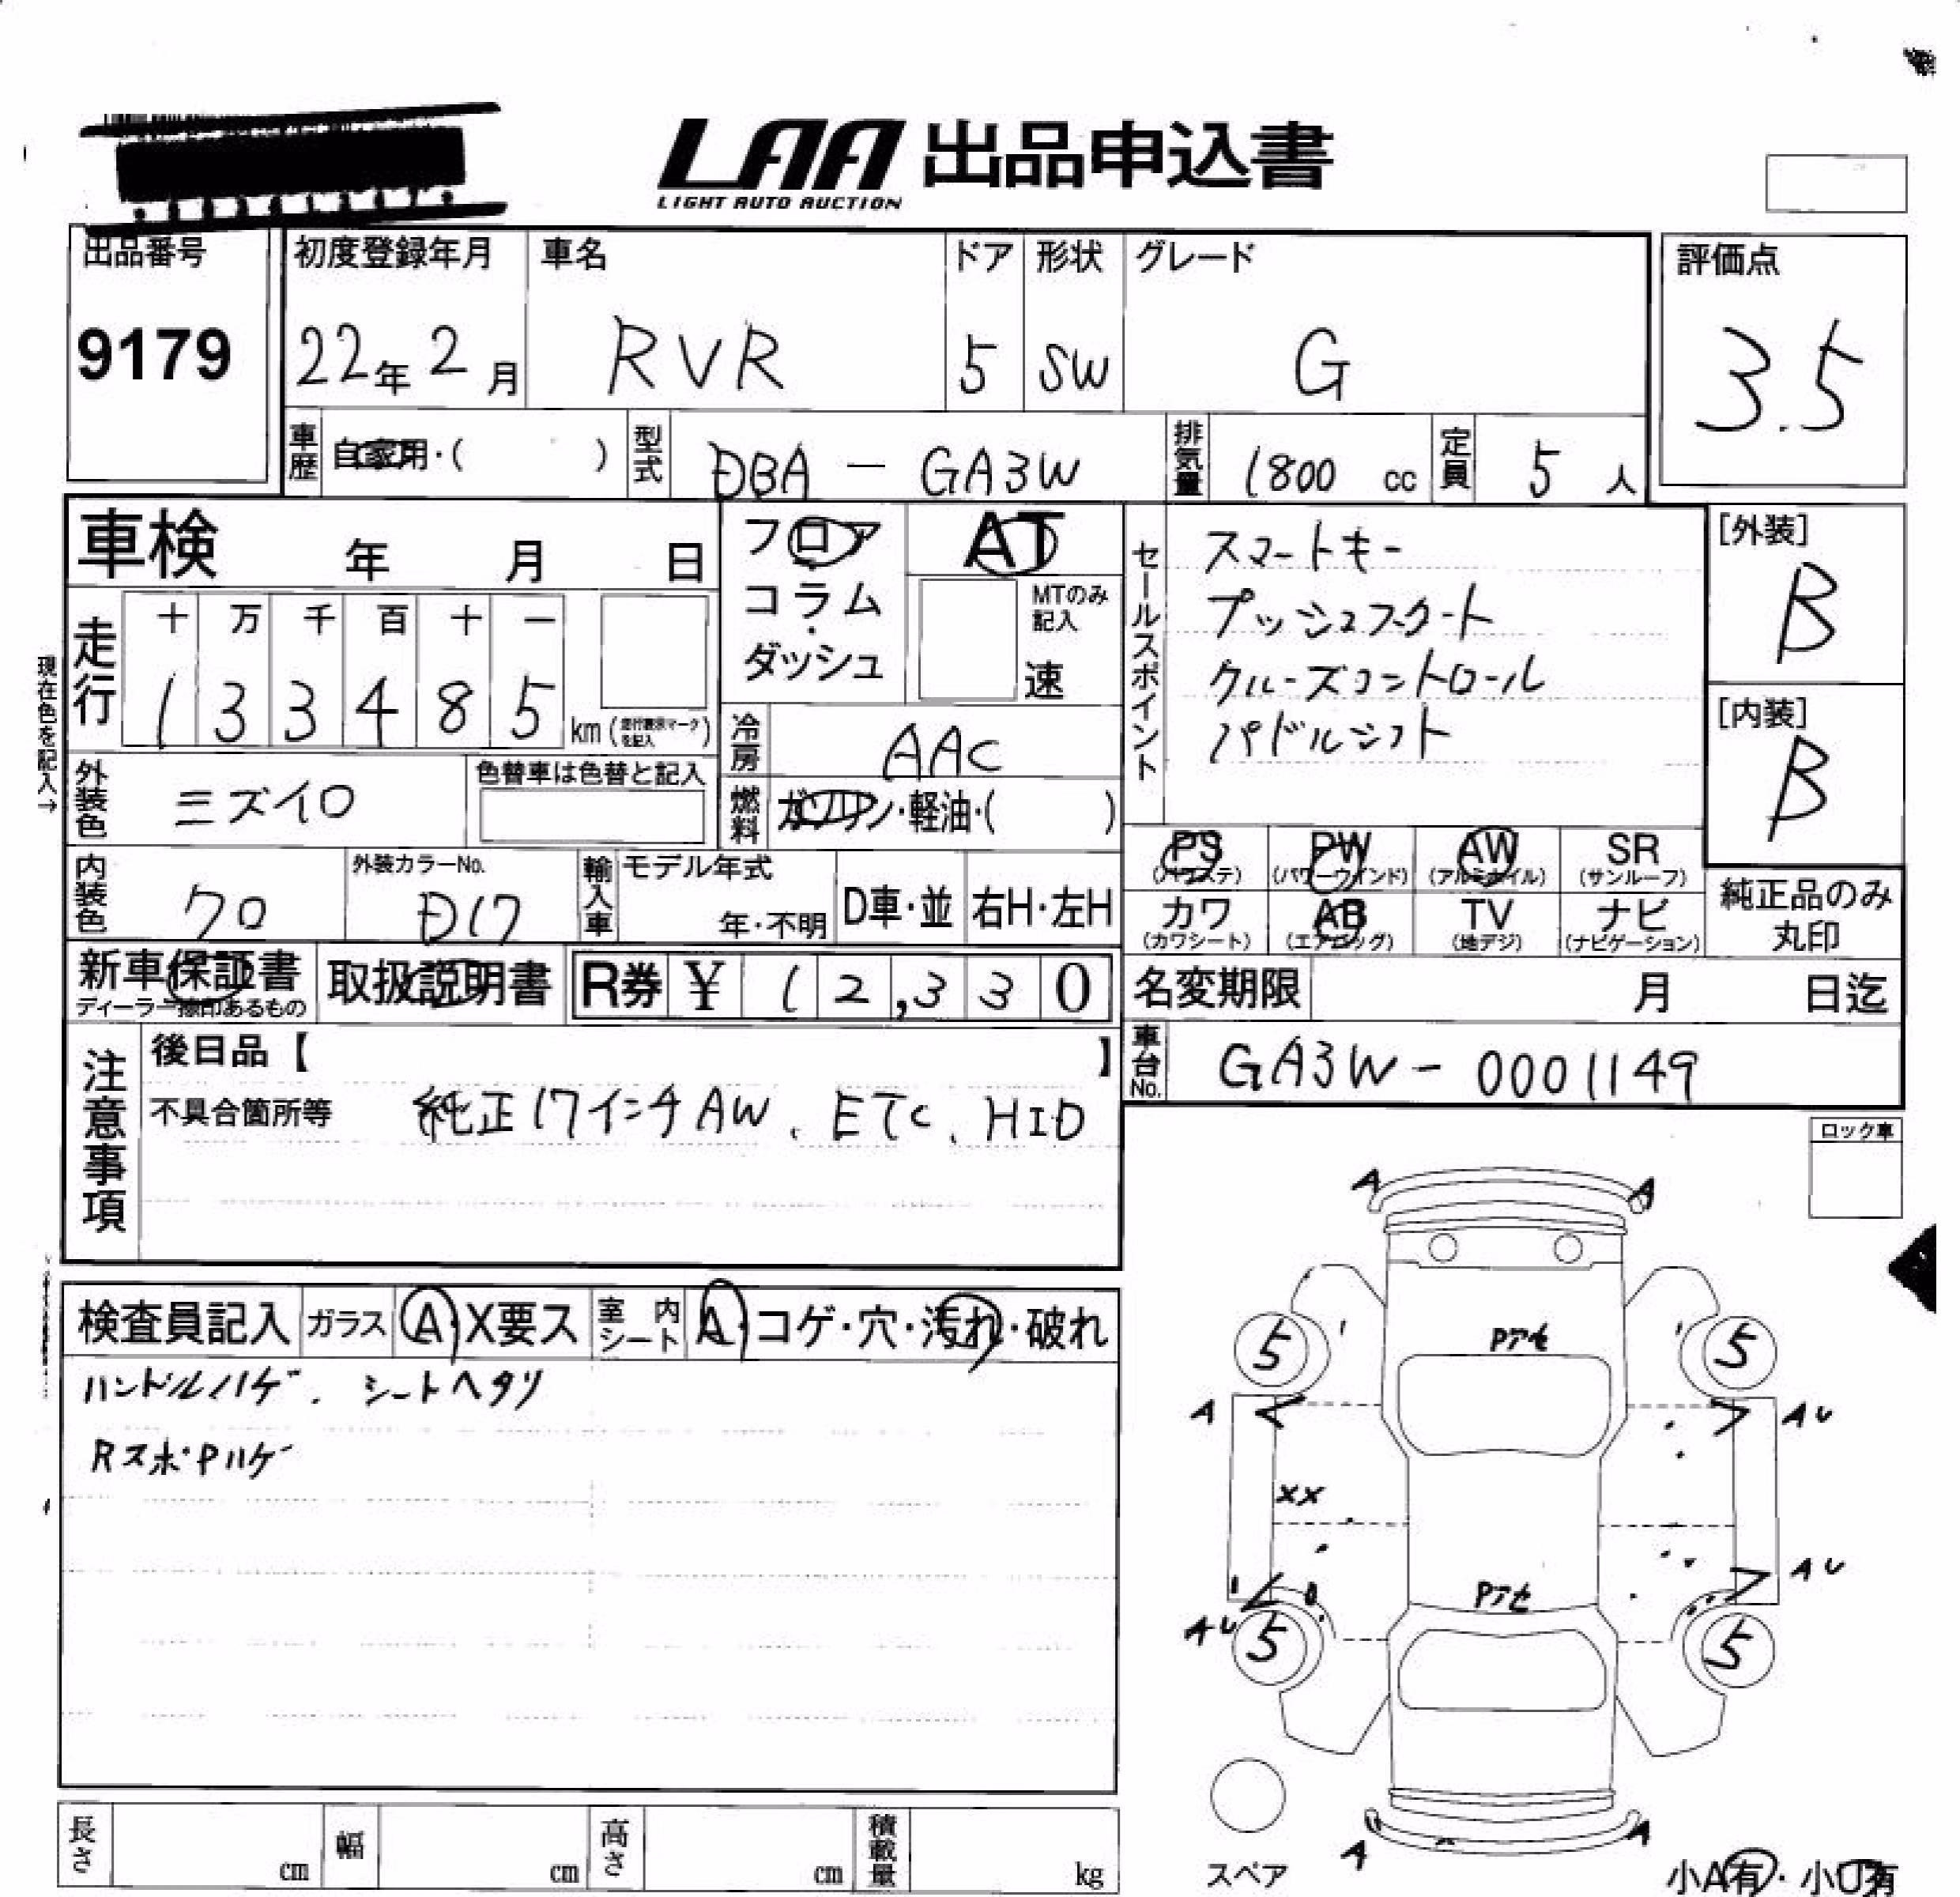 LAA 出品申込書
LIGHT AUTO AUCTION
出品番号
9179
初度登録年月
22年 2月
車名
RVR
ドア
5
形状
SW
グレード
G
評価点
3.5
車歴
自家用・( )
型式
DBA - GA3W
排気量
1800 cc
定員
5 人
車検 年 月 日
フロア
コラム
ダッシュ
AT
MTのみ
記入
速
セールスポイント
スマートキー
プッシュスタート
クルーズコントロール
パドルシフト
[外装]
B
[内装]
B
現在色を記入→
走行
十 万 千 百 十 一
1 3 3 4 8 5 km (走行表示マークを記入)
冷房
AAC
外装色
ミズイロ
色替車は色替と記入
燃料
ガソリン・軽油・( )
内装色
クロ
外装カラーNo.
D17
輸入車
モデル年式
年・不明
D車・並
右H・左H
PS
(パワステ)
PW
(パワーウインド)
AW
(アルミホイル)
SR
(サンルーフ)
カワ
(カワシート)
AB
(エアロッグ)
TV
(地デジ)
ナビ
(ナビゲーション)
純正品のみ
丸印
新車保証書
ディーラー捺印あるもの
取扱説明書
R券 ¥ 1 2,3 3 0
名変期限 月 日迄
車台No.
GA3W-0001149
注意事項
後日品【 】
不具合箇所等 純正17インチAW、ETC、HID
ロック車
検査員記入 ガラス A・X要ス 室内シート A・コゲ・穴・汚れ・破れ
ハンドルハゲ、シートヘタリ
RスポPハゲ
A A
Pアセ
5 5
A AU
XX
Pアセ
AU
AU
5 5
A A
スペア
小A有・小U有
長さ cm 幅 cm 高さ cm 積載量 kg